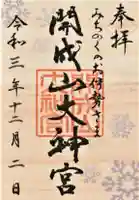 奉拝
みちのくのお伊勢さま
開成山大神宮
令和三年十二月二日